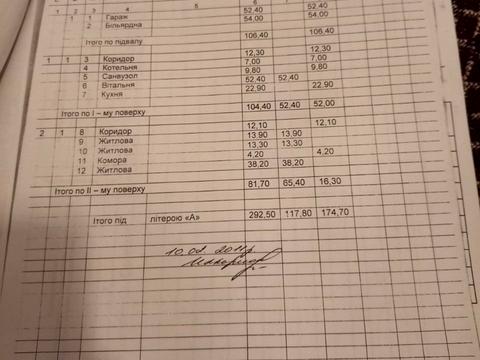 1 2 3 4 5 6 7
1 1 Гараж 52,40 52,40
2 Більярдна 54,00 54,00
Ітого по підвалу 106,40 106,40
1 1 3 Коридор 12,30 12,30
4 Котельня 7,00 7,00
5 Санвузол 9,80 9,80
6 Вітальня 52,40 52,40
7 Кухня 22,90 22,90
Ітого по І – му поверху 104,40 52,40 52,00
2 1 8 Коридор 12,10 12,10
9 Житлова 13,90 13,90
10 Житлова 13,30 13,30
11 Комора 4,20 4,20
12 Житлова 38,20 38,20
Ітого по ІІ – му поверху 81,70 65,40 16,30
Ітого під літерою «А» 292,50 117,80 174,70